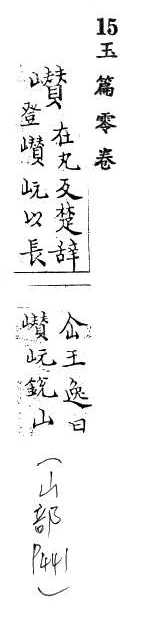 15玉篇零卷
巑
在丸反楚辞
登巑岏以長
仚王逸曰
巑岏銳山
(山部P441)